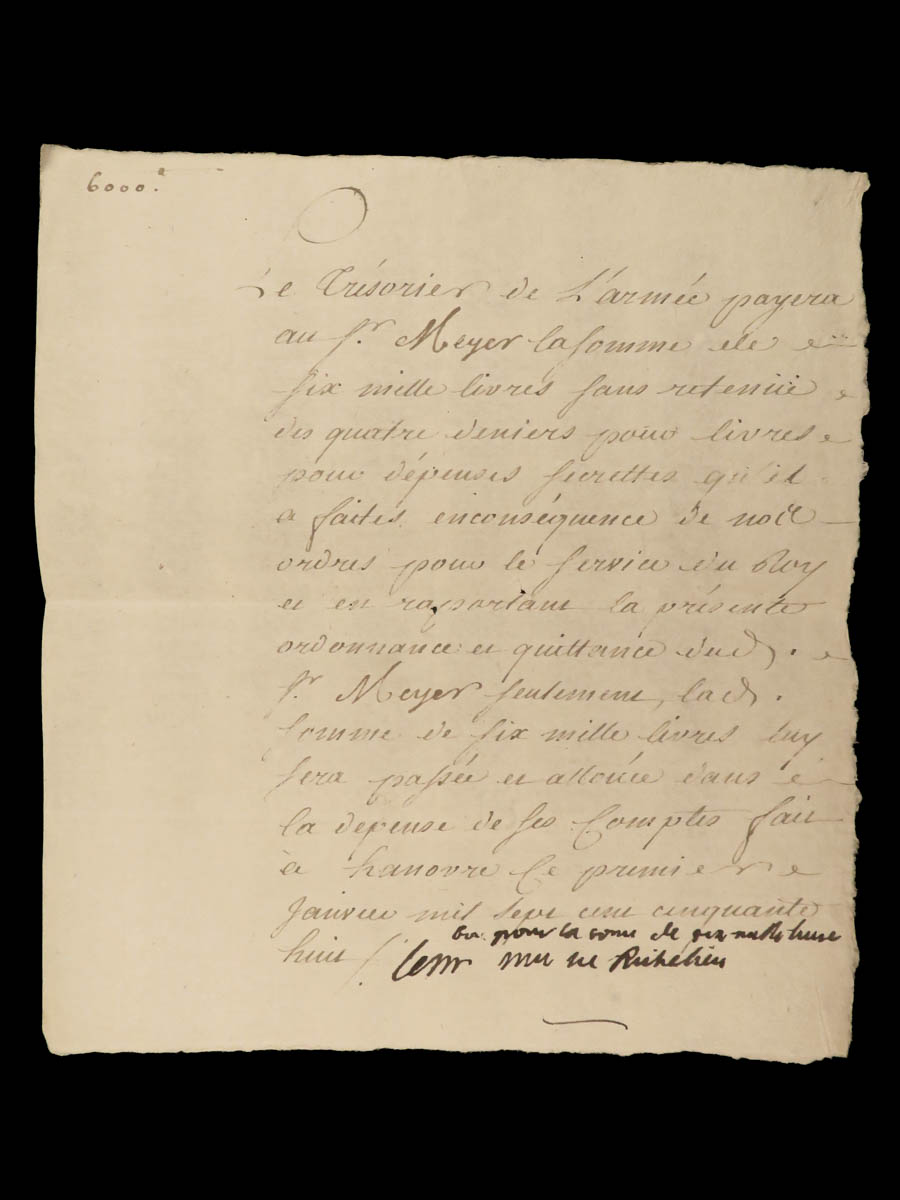 6000.#
Le Trésorier de L'armée payera
au Sr. Meyer la somme de
six mille livres sans retenüe
des quatre deniers pour livres
pour dépenses secrettes qu'il
a faites en conséquence de nos
ordres pour le service du Roy
et en raportant la présente
ordonnance et quittance dud.
Sr Meyer seulement, lad.
somme de six mille livres luy
sera passée et alloüée dans
la depense de ses Comptes fait
à hanovre Ce premier
Janvier mil sept cent cinquante
huit /.
bon pour la some de six mille livres
le m de Richelieu